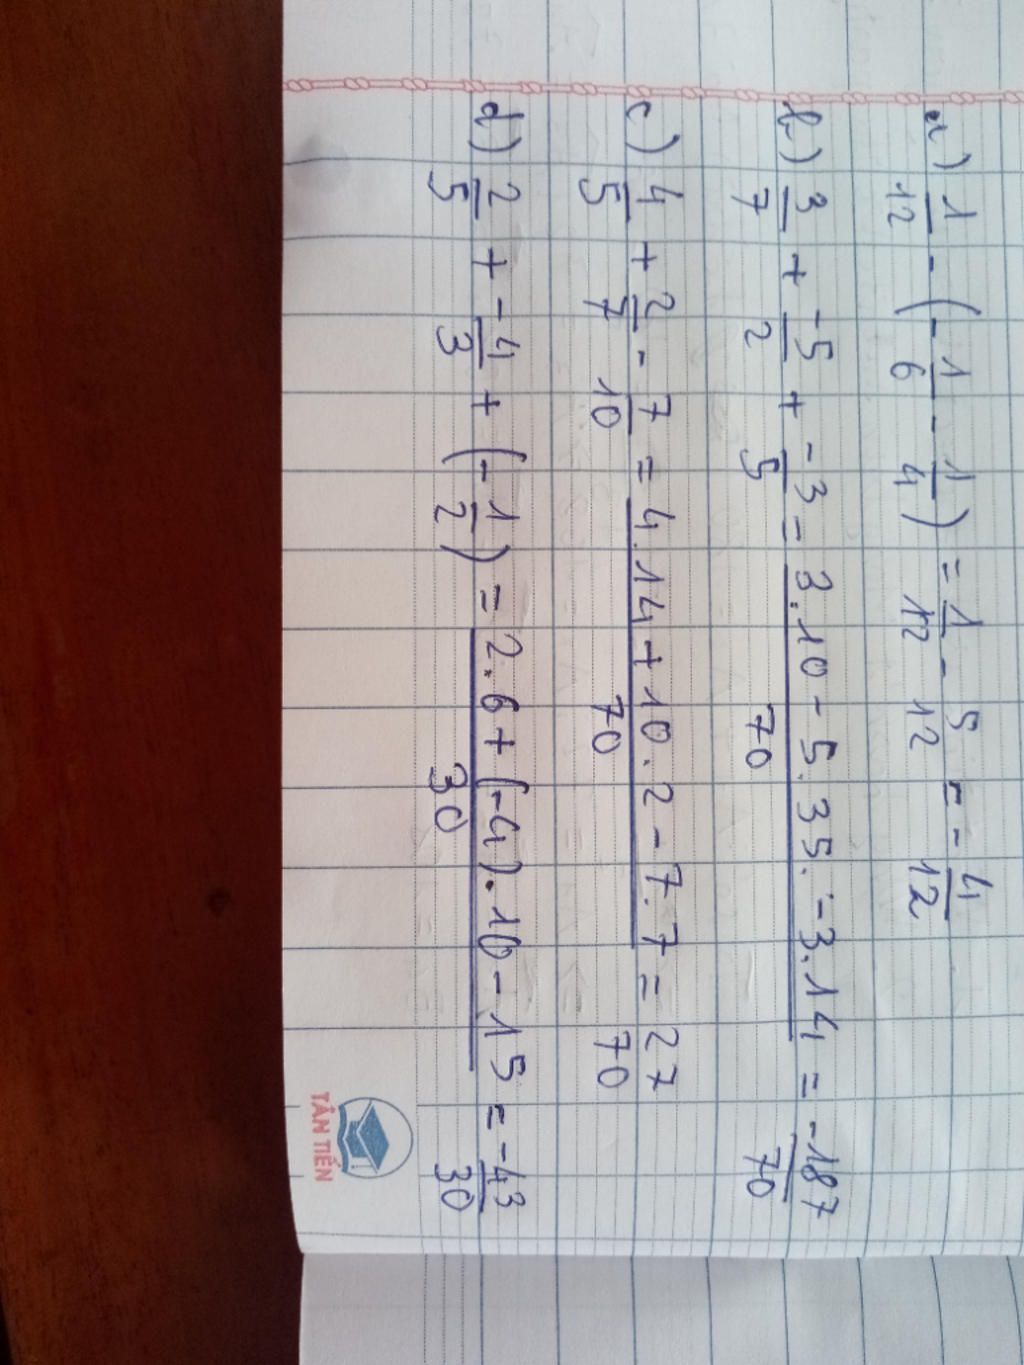 a) 1/12 - (-1/6 - 1/4) = 1/12 - 5/12 = -4/12
b) 3/7 + -5/2 + -3/5 = 3.10-5.35.-3.14/70 = -187/70
c) 4/5 + 2/7 - 7/10 = 4.14+10.2-7.7/70 = 27/70
d) 2/5 + -4/3 + (-1/2) = 2.6+(-4).10-15/30 = -43/30
TÂN TIẾN